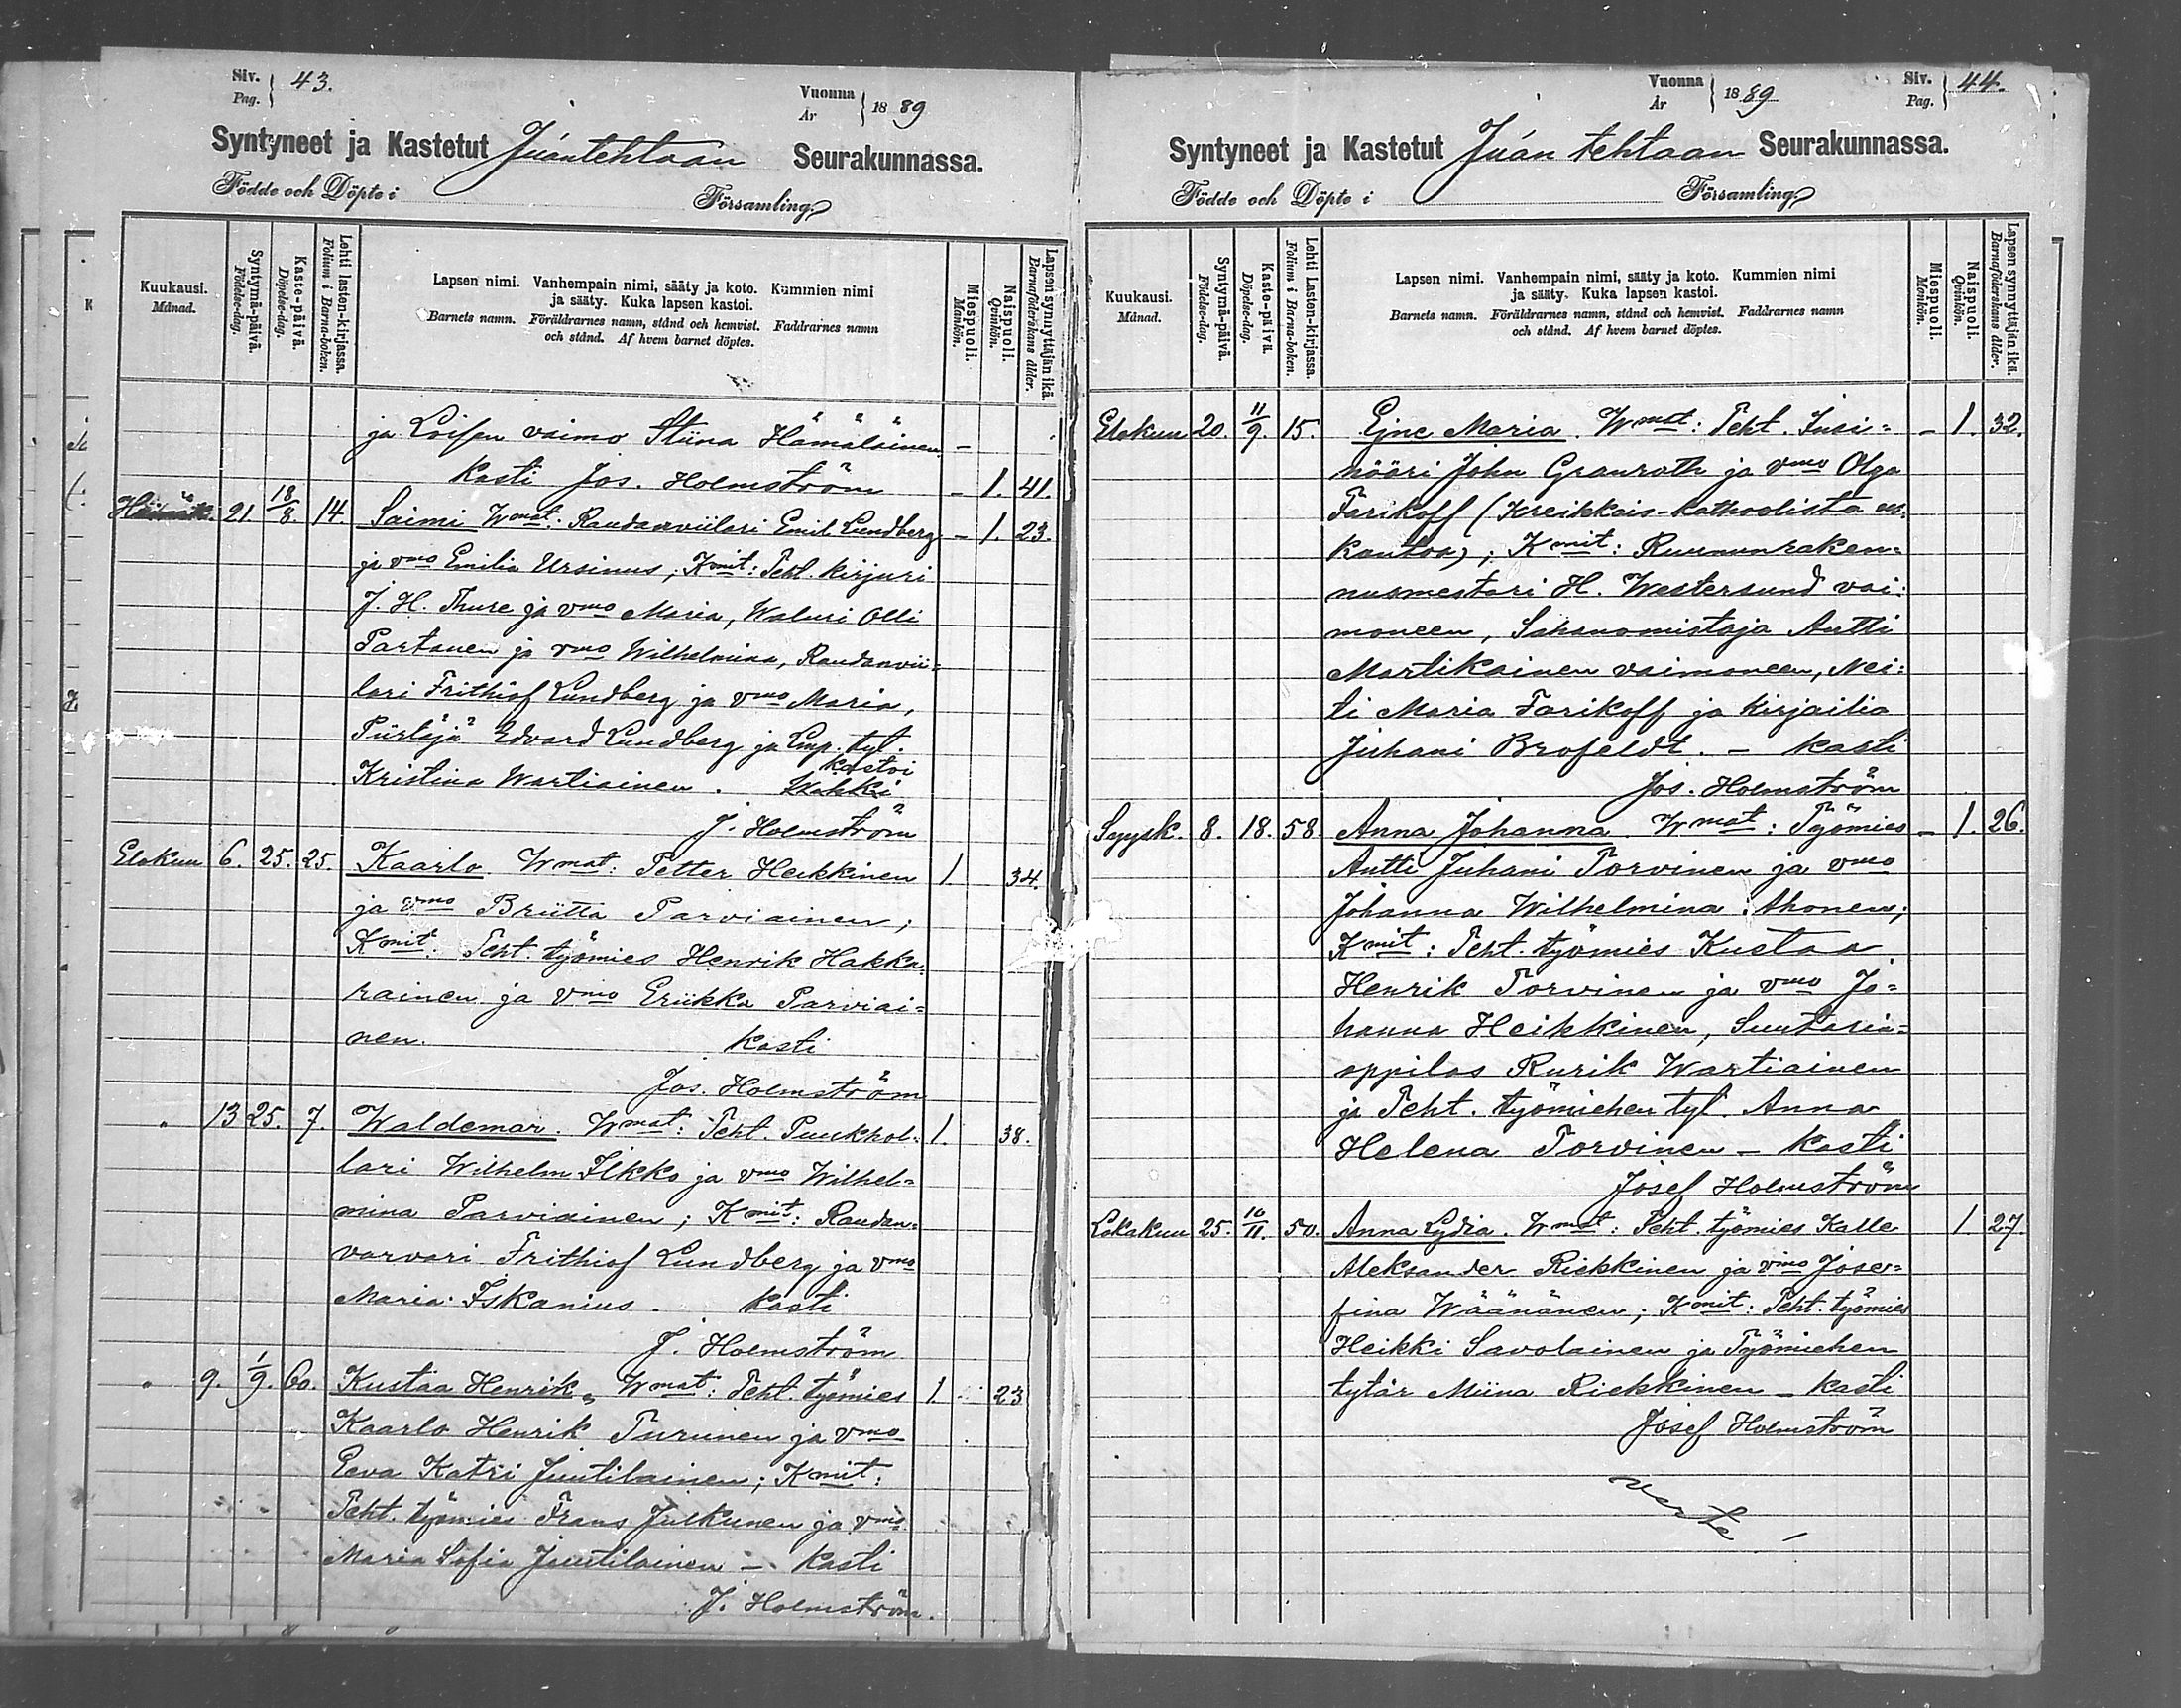 Siv. Pag. 43.
Vuonna År 1889
Syntyneet ja Kastetut Juantehtaan Seurakunnassa.
Födde och Döpte i Församling.
Kuukausi. Månad.
Syntymä-päivä. Födelse-dag.
Kaste-päivä. Döpelse-dag.
Lehti lasten-kirjassa. Folium i Barna-boken.
Lapsen nimi. Vanhempain nimi, sääty ja koto. Kummien nimi
ja sääty. Kuka lapsen kastoi.
Barnets namn. Föräldrarnes namn, stånd och hemvist. Faddrarnes namn
och stånd. Af hvem barnet döptes.
Miespuoli. Mankön.
Naispuoli. Qvinkön.
Lapsen synnyttäjän ikä. Barnaföderskans ålder.
ja Loisen vaimo Stiina Hämäläinen. -
Kasti Jos. Holmström - 1. 41.
Heinäk. 21. 18/8. 14. Saimi Wmat: Raudanviilari Emil Lundberg - 1. 23.
ja vmo Emilia Ursinus; Kmit: Teht. kirjuri
J. H. Thure ja vmo Maria, Waluri Olli
Partanen ja vmo Wilhelmina, Raudanvii=
lari Frithiof Lundberg ja vmo Maria,
Piirtäjä Edvard Lundberg ja Lmp. tyt.
Kristina Wartiainen. kastoi
J. Holmström
Elokuu 6. 25. 25. Kaarlo Wmat: Petter Heikkinen 1. 34.
ja vmo Briitta Parviainen;
Kmit: Teht. työmies Henrik Hakka=
rainen ja vmo Eriikka Parviai=
nen. Kasti
Jos. Holmström
" 13 25. 7. Waldemar. Wmat: Teht. Puukhol= 1. 38.
lari Wilhelm Ilkko ja vmo Wilhel=
mina Parviainen; Kmit: Raudan=
varvari Frithiof Lundberg ja vmo
Maria Iskanius. Kasti
J. Holmström
" 9. 1/9. 60. Kustaa Henrik, Wmat: Teht. työmies 1. 23
Kaarlo Henrik Turunen ja vmo
Eeva Katri Juutilainen; Kmit:
Teht. työmies Frans Julkunen ja vmo
Maria Sofia Juutilainen - Kasti
J. Holmström.
Vuonna År 1889
Siv. Pag. 44.
Syntyneet ja Kastetut Juan tehtaan Seurakunnassa.
Födde och Döpte i Församling.
Kuukausi. Månad.
Syntymä-päivä. Födelse-dag.
Kaste-päivä. Döpelse-dag.
Lehti Lasten-kirjassa. Folium i Barna-boken.
Lapsen nimi. Vanhempain nimi, sääty ja koto. Kummien nimi
ja sääty. Kuka lapsen kastoi.
Barnets namn. Föräldrarnes namn, stånd och hemvist. Faddrarnes namn
och stånd. Af hvem barnet döptes.
Miespuoli. Mankön.
Naispuoli. Qvinkön.
Lapsen synnyttäjän ikä. Barnaföderskans ålder.
Elokuu 20. 11/9. 15. Ejne Maria. Wmat: Teht. Insi= - 1. 32.
nööri John Granroth ja vmo Olga
Tarikoff (Kreikkais-Katholista us=
kontoa); Kmit: Ruununraken=
nusmestari H. Westersund vai=
moneen, Sahanomistaja Antti
Martikainen vaimoneen, Nei=
ti Maria Tarikoff ja kirjailia
Juhani Brofeldt. - Kasti
Jos. Holmström
Syysk. 8. 18. 58. Anna Johanna. Wmat: Työmies - 1. 26.
Antti Juhani Torvinen ja vmo
Johanna Wilhelmina Ahonen;
Kmit: Teht. työmies Kustaa
Henrik Torvinen ja vmo Jo=
hanna Heikkinen, Suutarin=
oppilas Rurik Wartiainen
ja Teht. työmiehen tyt. Anna
Helena Torvinen - Kasti
Josef Holmström
Lokakuu 25. 10/11. 50. Anna Lydia. Wmat: Teht. työmies Kalle 1. 27.
Aleksander Riekkinen ja vmo Jose=
fina Wäänänen; Kmit: Teht. työmies
Heikki Savolainen ja Työmiehen
tytär Miina Riekkinen - Kasti
Josef Holmström
Verte